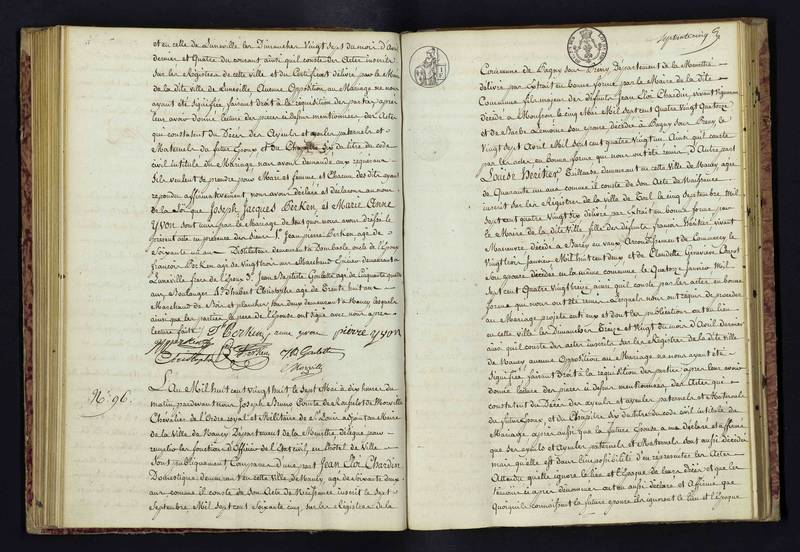 et en celle de Lunéville les Dimanches Vingt sept du mois d'Avril
dernier et Quatre du courant ainsi qu'il conste des Actes inscrits
sur les Registres de cette ville et du Certificat délivré par le Maire
de la dite ville de Lunéville, Aucune Opposition au Mariage ne nous
ayant été signifiée, faisant droit à la réquisition des parties, après
leur avoir donné lecture des pièces ci dessus mentionnées, des Actes
qui constatent du Décès des Ayeuls et ayeules paternels et
Maternels du futur Epoux et du Chapitre six du titre du code
civil intitulé du Mariage nous avons demandé aux requérans
s'ils veulent se prendre pour Mari et femme et Chacun d'eux ayant
répondu affirmativement, nous avons déclaré et déclarons au nom
de la Loi que Joseph Jacques Perken, et Marie Anne
Yvon sont unis par le Mariage de tout quoi nous avons dressé le
présent acte en présence des Sieurs Jean pierre Perken age de
Soixante un ans Instituteur demeurant à Dombasle oncle de l'Epoux
François Perken age de vingt trois ans Marchand Epicier demeurant à
Lunéville frère de l'époux Jean Baptiste Goulette age de Cinquante quatre
ans Boulanger et Hubert Christophe age de Trente huit ans
Marchand de Bois et planches tous deux demeurant à Nancy lesquels
ainsi que les parties le père de l'Epouse ont signé avec nous après
lecture faite
J Perken anne yvon pierre Yvon
Christophe Perken JB Goulette
Morville
N.° 96.
L'An Mil huit cent vingt huit le Sept Mai à dix heures du
matin pardevant nous Joseph Bruno Comte de Morville
Chevalier de l'Ordre royal et Militaire de St Louis adjoint au Maire
de la Ville de Nancy Département de la Meurthe, délégué pour
remplir les fonctions d'Officier de l'Etat civil, en l'hôtel de Ville
Sont publiquement Comparus d'une part Jean Eloi Chardin
Domestique demeurant en cette Ville de Nancy, age de soixante deux
ans comme il conste de son Acte de Naissance inscrit le sept
Septembre Mil sept cent soixante cinq, sur les Registres de la
septante cinq
Commune de Pagny sous Preny, Département de la Meurthe
délivré par Extrait en bonne forme par le Maire de la dite
Commune fils majeur des défunts Jean Eloi Chardin, vivant Vigneron
décédé à Mousson le cinq Mai Mil sept cent Quatre Vingt Quatorze
et de Barbe Lemoine son épouse décédée à Pagny sous Preny le
Vingt sept Avril Mil sept cent Quatre Vingt un Ainsi qu'il conste
par les actes en bonne forme qui nous ont été remis. D'Autre part
Louise Héritier Tailleuse demeurant en cette Ville de Nancy agée
de Quarante un ans comme il conste de son Acte de Naissance
inscrit sur les Registres de la ville de Toul le cinq Septembre Mil
sept cent Quatre Vingt Six délivré par Extrait en bonne forme par
le Maire de la dite Ville, fille des défunts francois Héritier vivant
Manœuvre décédé à Burey en vaux Arrondissement de Commercy le
Vingt trois Janvier Mil huit cent deux et de Claudette Geneviève
son épouse décédée en la même commune le Quatorze Janvier Mil
sept cent Quatre Vingt treize ainsi qu'il conste par les actes en bonne
forme qui nous ont été remis. Lesquels nous ont requis de procéder
au Mariage projeté entr'eux et dont les publications ont eu lieu
en cette ville les Dimanches Treize et Vingt du mois d'Avril dernier
ainsi qu'il conste des actes inscrits sur les Registres de la dite ville
de Nancy aucune Opposition au Mariage ne nous ayant été
Signifiée faisant Droit à la réquisition des parties après leur avoir
donné lecture des pièces ci dessus mentionnées des Actes qui
constatent du Décès des ayeuls et ayeules paternels et Maternels
du futur Epoux, et du Chapitre six du titre du code civil intitulé du
Mariage après aussi que la future Epouse a déclaré et affirmé
que ses ayeuls et ayeules paternels et Maternels sont aussi décédés
mais qu'elle est dans l'impossibilité d'en représenter les Actes
Attendu qu'elle ignore le lieu et l'Epoque de leurs décès et que les
témoins ci après dénommés ont aussi déclaré et affirmé que
quoiqu'ils connaissent la future épouse ils ignorent le lieu et l'époque